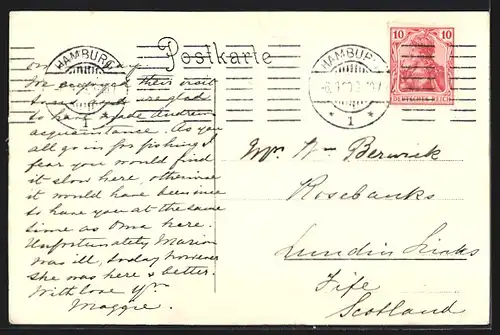 HAMBURG
1
Postkarte
HAMBURG
* 1 *
10 10
DEUTSCHES REICH
We enjoyed their visit
so much & are glad
to have made Andrew's
acquaintance. As you
all go in for fishing I
fear you would find
it slow here, otherwise
it would have been nice
to have you at the same
time as Oma here.
Unfortunately Marion
was ill, today however
she was here & better.
With love yrs
Maggie.
Wm Berwick
Rosebanks
Lundin Links
Fife
Scotland